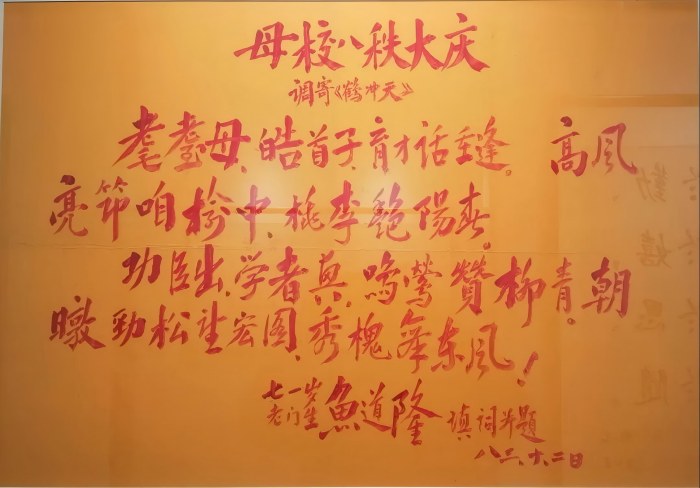 母校八秩大庆
调寄《鹤冲天》
耄耋母,皓首子,育才话重逢。 高风
亮节咱榆中,桃李艳陽春。
功臣出,学者真,鸣莺赞柳青。朝
暾劲松望宏图,秀槐舞东风!
七一岁
老门生
魚道隆 填词并题
八二、十、二日